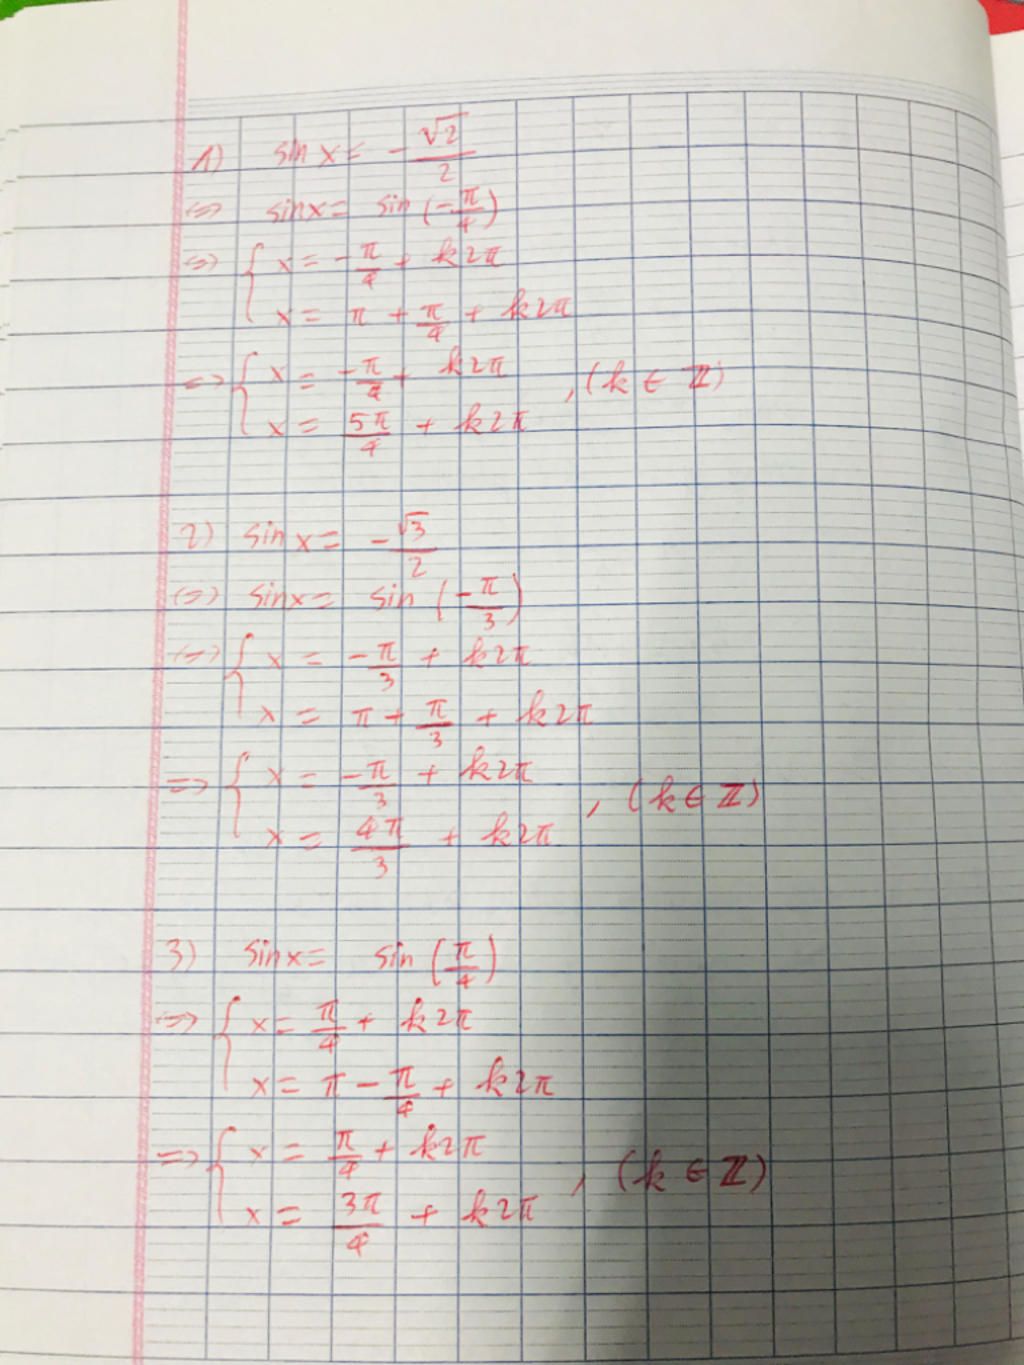 1) sin x = - √2/2
<=> sinx = sin (-π/4)
<=> { x = -π/4 + k2π
x = π + π/4 + k2π
=> { x = -π/4 + k2π
x = 5π/4 + k2π , (k ∈ ℤ)
2) sin x = - √3/2
<=> sinx = sin (-π/3)
<=> { x = -π/3 + k2π
x = π + π/3 + k2π
=> { x = -π/3 + k2π
x = 4π/3 + k2π , (k ∈ ℤ)
3) sinx = sin (π/4)
=> { x = π/4 + k2π
x = π - π/4 + k2π
=> { x = π/4 + k2π
x = 3π/4 + k2π , (k ∈ ℤ)